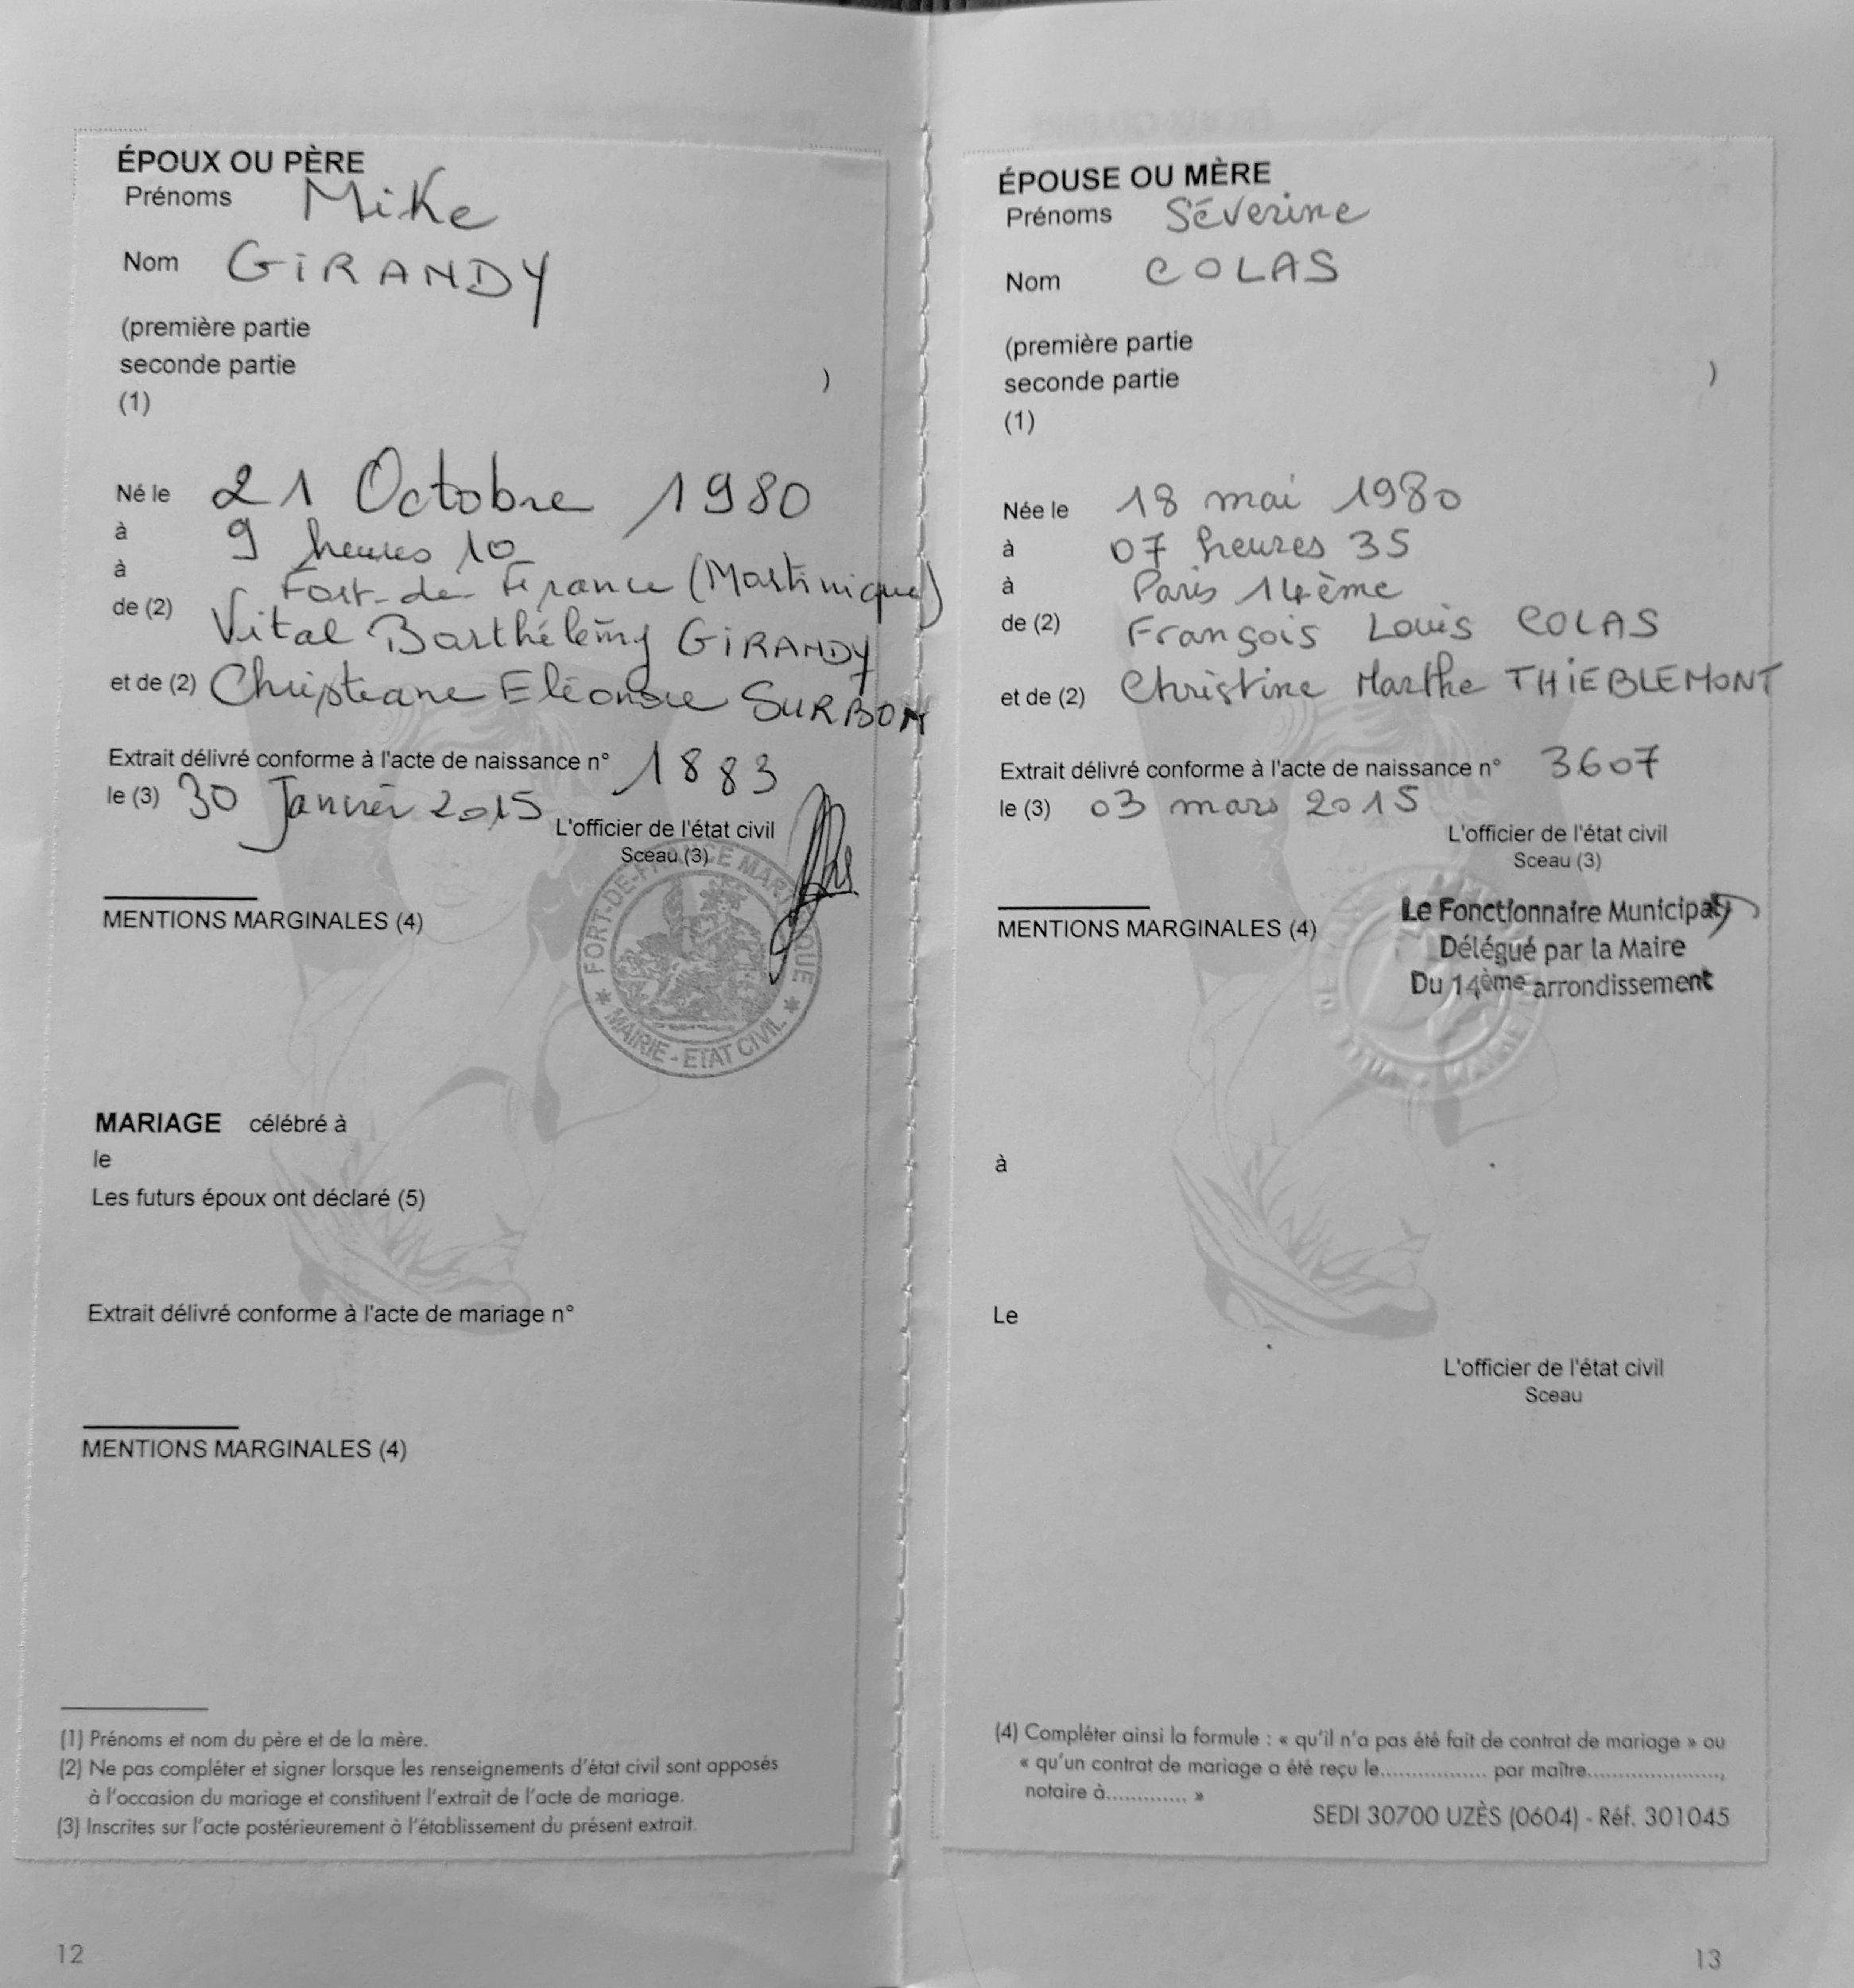 ÉPOUX OU PÈRE
Prénoms Mike
Nom GIRANDY
(première partie
seconde partie )
(1)
Né le 21 Octobre 1980
à 9 heures 10
à Fort-de-France (Martinique)
de (2) Vital Barthélémy GIRANDY
et de (2) Christiane Eléonore SURBON
Extrait délivré conforme à l'acte de naissance n° 1883
le (3) 30 Janvier 2015
L'officier de l'état civil
Sceau (3)
FORT-DE-FRANCE MARTINIQUE
* MAIRIE - ETAT CIVIL *
MENTIONS MARGINALES (4)
MARIAGE célébré à
le
Les futurs époux ont déclaré (5)
Extrait délivré conforme à l'acte de mariage n°
MENTIONS MARGINALES (4)
(1) Prénoms et nom du père et de la mère.
(2) Ne pas compléter et signer lorsque les renseignements d'état civil sont apposés
à l'occasion du mariage et constituent l'extrait de l'acte de mariage.
(3) Inscrites sur l'acte postérieurement à l'établissement du présent extrait.
12
ÉPOUSE OU MÈRE
Prénoms Séverine
Nom COLAS
(première partie
seconde partie )
(1)
Née le 18 mai 1980
à 07 heures 35
à Paris 14ème
de (2) François Louis COLAS
et de (2) Christine Marthe THIEBLEMONT
Extrait délivré conforme à l'acte de naissance n° 3607
le (3) 03 mars 2015
L'officier de l'état civil
Sceau (3)
MENTIONS MARGINALES (4)
Le Fonctionnaire Municipal
Délégué par la Maire
Du 14ème arrondissement
à
Le
L'officier de l'état civil
Sceau
(4) Compléter ainsi la formule : « qu'il n'a pas été fait de contrat de mariage » ou
« qu'un contrat de mariage a été reçu le................. par maître......................,
notaire à............. »
SEDI 30700 UZÈS (0604) - Réf. 301045
13